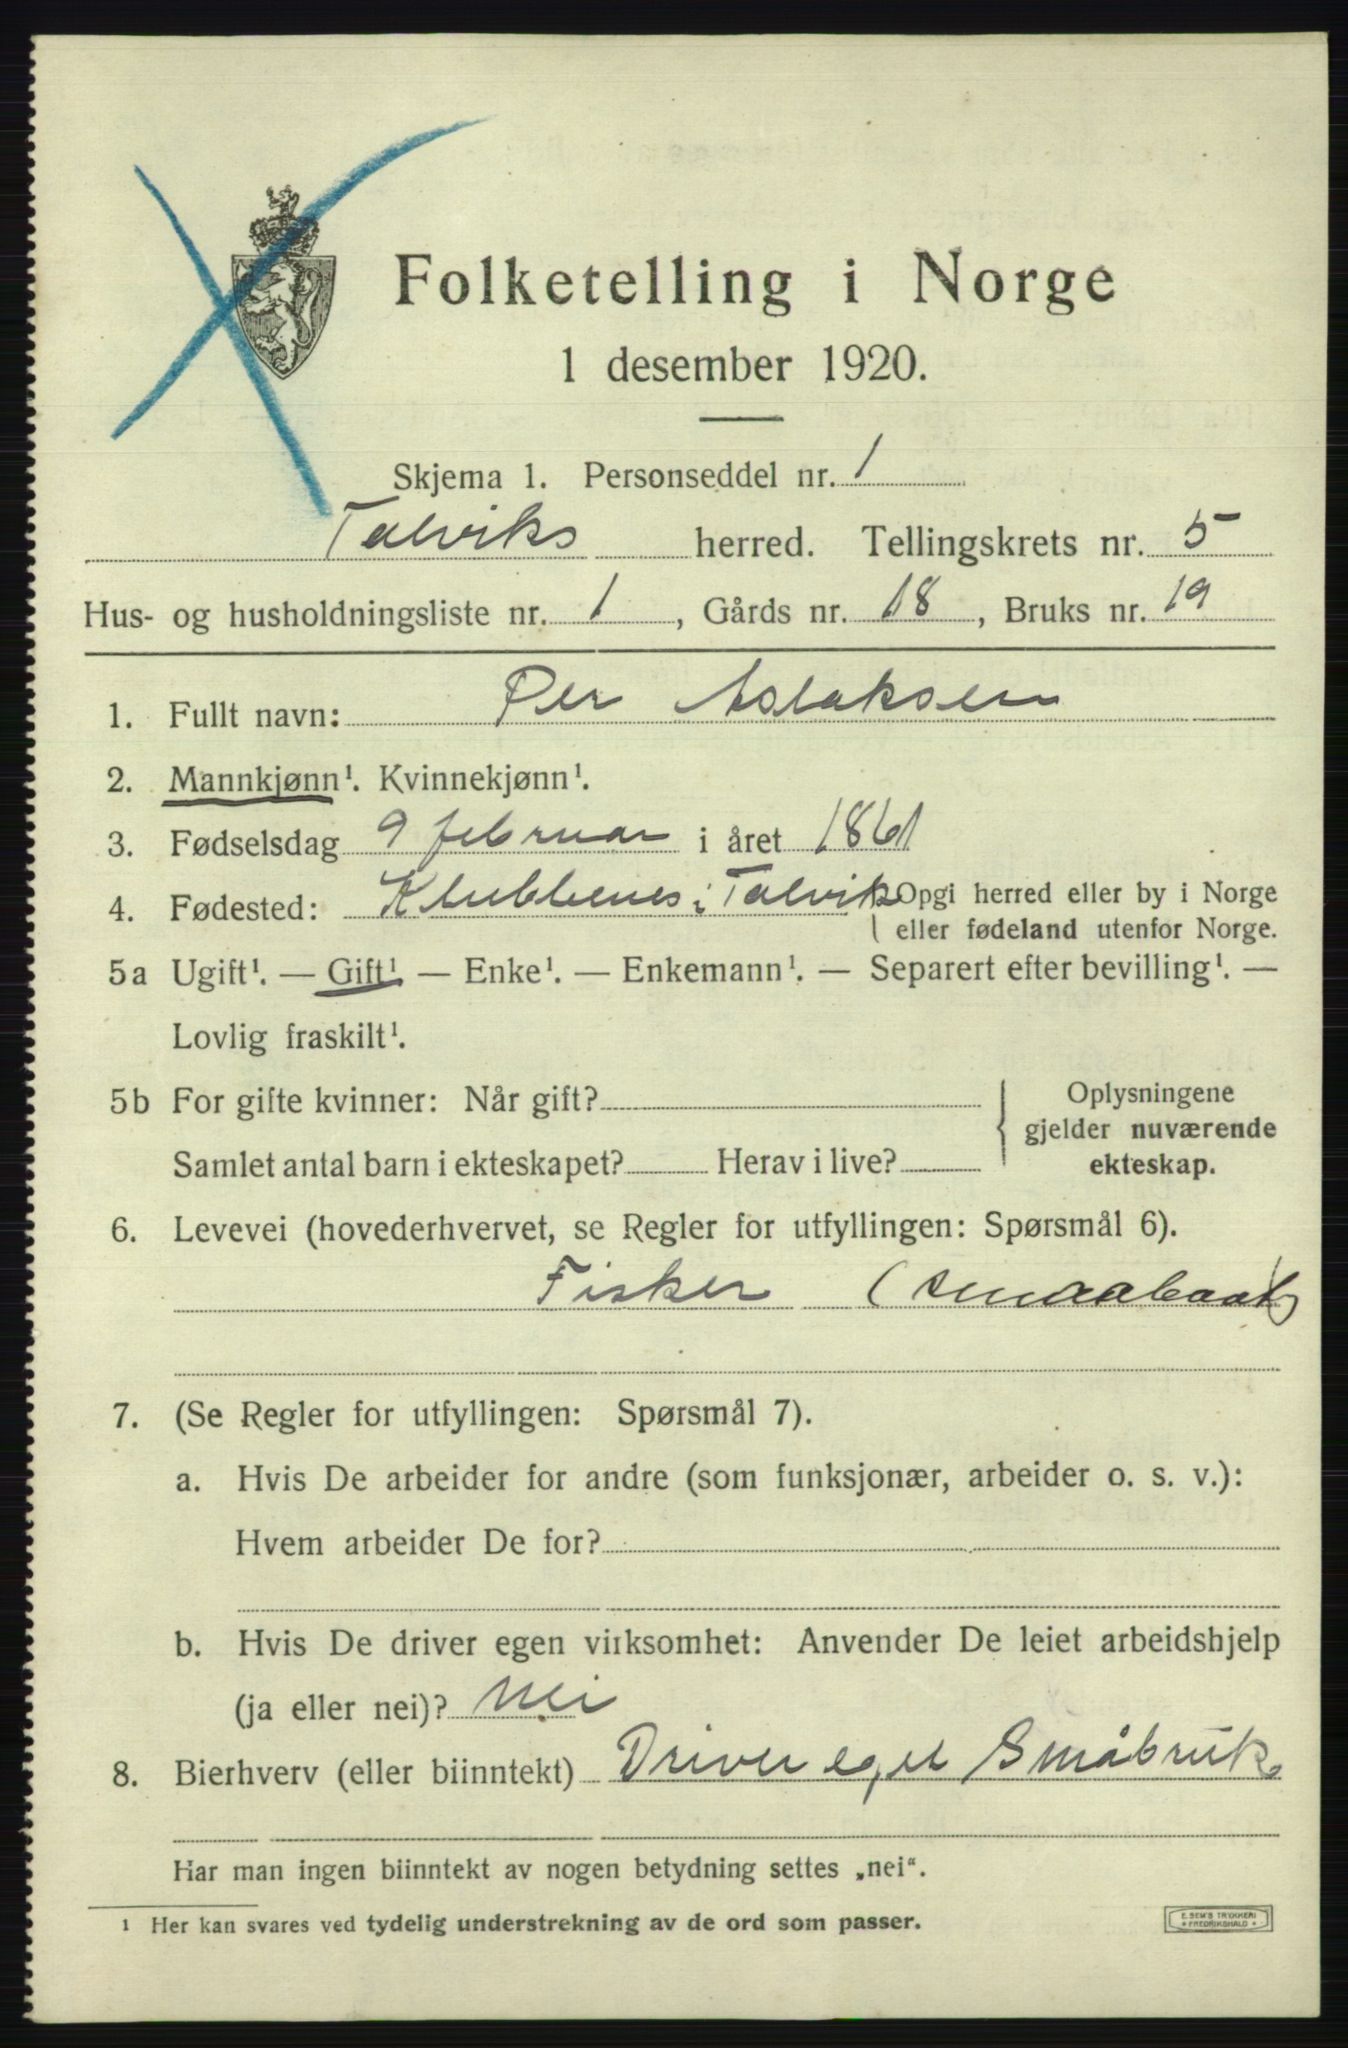 Folketelling i Norge
1 desember 1920.
Skjema 1. Personseddel nr. 1
Talviks herred. Tellingskrets nr. 5
Hus- og husholdningsliste nr. 1, Gårds nr. 18, Bruks nr. 19
1. Fullt navn: Per Aslaksen
2. Mannkjønn¹. Kvinnekjønn¹.
3. Fødselsdag 9 februar i året 1861
4. Fødested: Klubbenes i Talvik Opgi herred eller by i Norge
eller fødeland utenfor Norge.
5a Ugift¹. — Gift¹ — Enke¹. — Enkemann¹. — Separert efter bevilling¹. —
Lovlig fraskilt¹.
5b For gifte kvinner: Når gift?
Samlet antal barn i ekteskapet? Herav i live?
Oplysningene
gjelder nuværende
ekteskap.
6. Levevei (hovederhvervet, se Regler for utfyllingen: Spørsmål 6).
Fisker (smaabaat)
7. (Se Regler for utfyllingen: Spørsmål 7).
a. Hvis De arbeider for andre (som funksjonær, arbeider o. s. v.):
Hvem arbeider De for?
b. Hvis De driver egen virksomhet: Anvender De leiet arbeidshjelp
(ja eller nei)? Nei
8. Bierhverv (eller biinntekt) Driver eget Småbruk
Har man ingen biinntekt av nogen betydning settes „nei“.
¹ Her kan svares ved tydelig understrekning av de ord som passer.
E. SEM'S TRYKKERI
* FREDRIKSHALD *